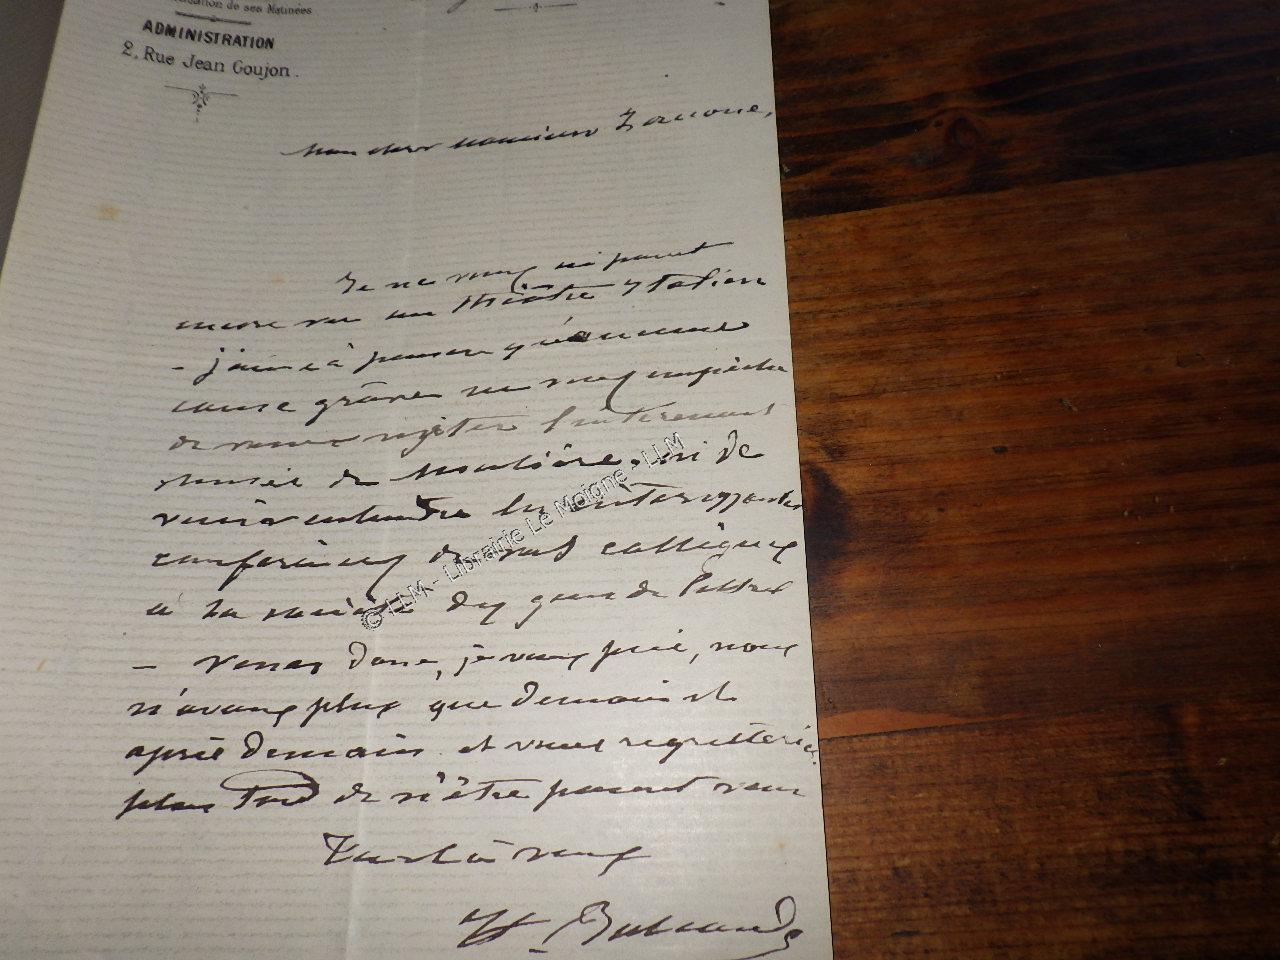 de ses Matinées
ADMINISTRATION
2, Rue Jean Goujon.
Mon cher monsieur
Je ne vous ai point
encore vu au théâtre ytalien
- j'aime à penser qu'aucune
cause grâve ne vous empêche
de venir visiter l'intéressant
musée de Molière, ni de
venir entendre les intéressantes
conférences de vos collègues
à la société des gens de Lettres
- Venez donc, je vous prie, nous
n'avons plus que demain et
après demain et vous regretteriez
plus tard de n'être point venu
Tout à vous
H. Ballande
© LLM - Librairie Le Moigne - LLM